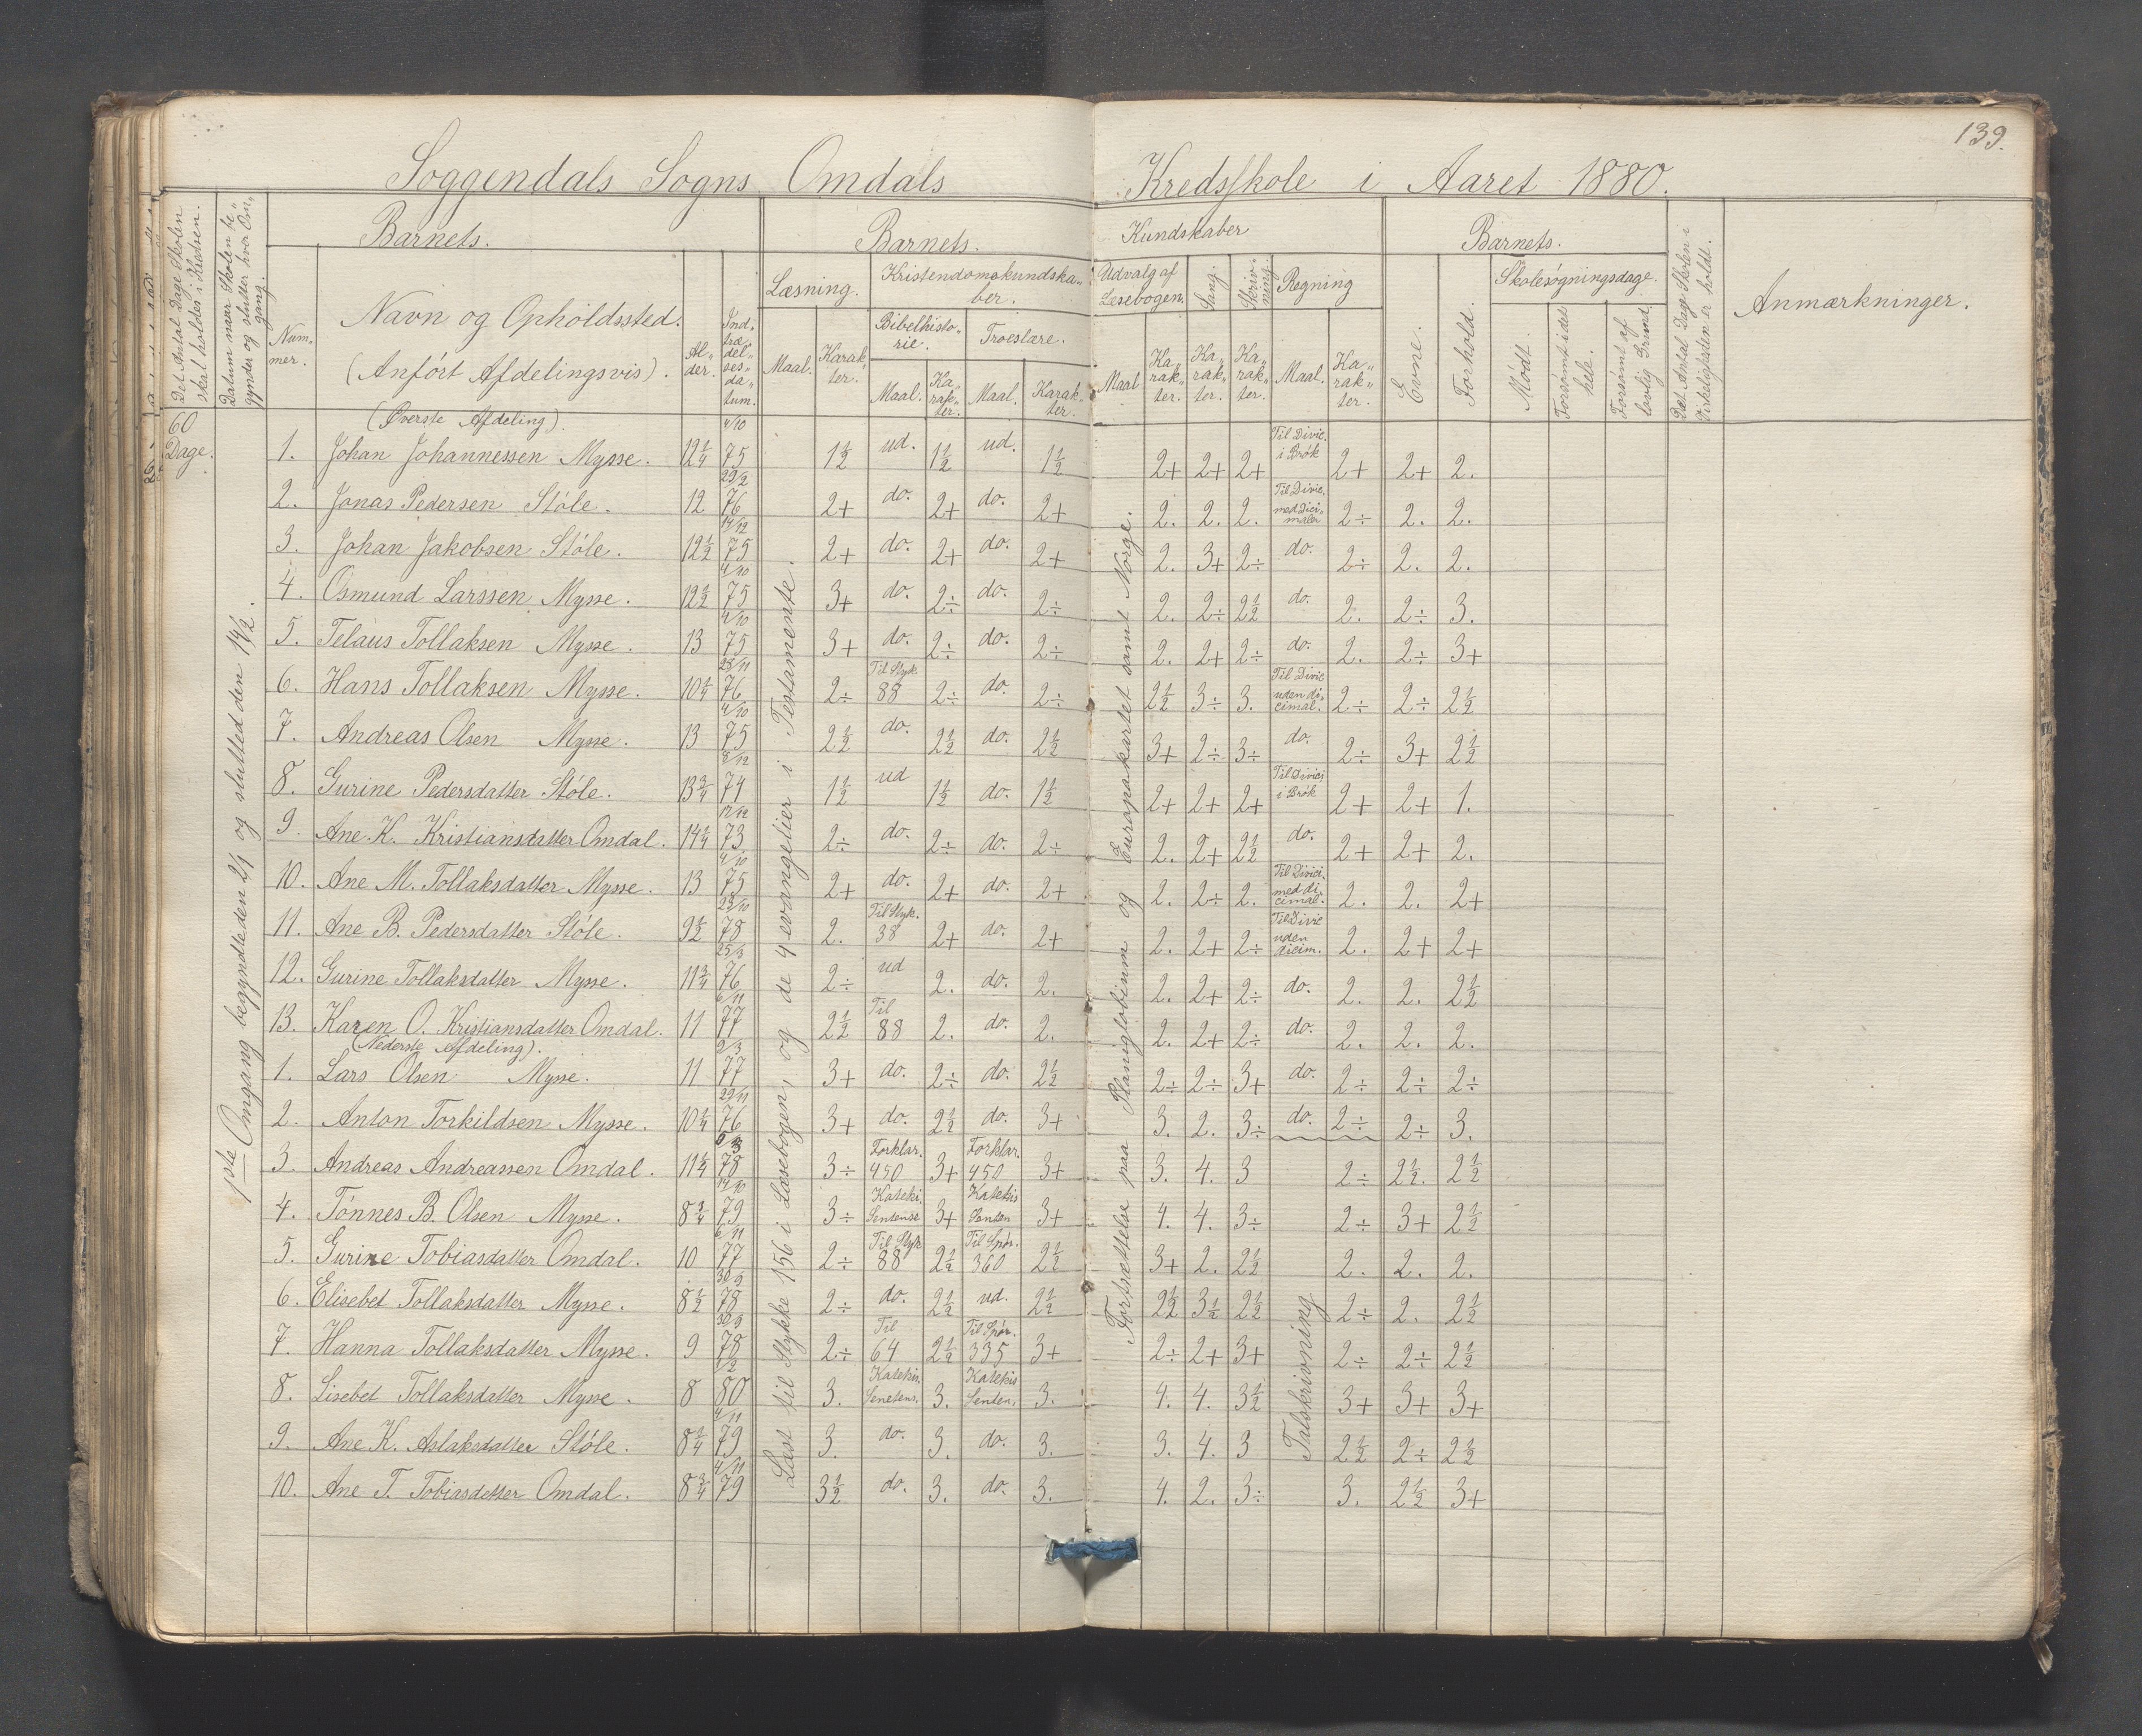 139.
Soggendals Sogns Omdals Kredsskole i Aaret 1880.
Det Antal Dage Skolen skal holdes i Kredsen.
Datum naar Skolen be„gynder og slutter hver Om„gang.
Barnets.
Num„mer.
Navn og Opholdssted.
(Anført Afdelingsvis).
Al„der.
Ind„træ„del„ses„da„tum.
Barnets.
Læsning.
Maal.
Karak„ter.
Kristendomskundska„ber.
Bibelhisto„rie.
Maal.
Ka„rak„ter.
Troeslære.
Maal.
Karak„ter.
Kundskaber
Udvalg af Læsebogen.
Maal
Ka„rak„ter.
Sang.
Ka„rak„ter.
Skriv„ning.
Ka„rak„ter.
Regning
Maal.
Ka„rak„ter.
Barnets.
Evne.
Forhold.
Skolesøgningsdage.
Mødt.
Forsømt i det hele.
Forsømt af lovlig Grund.
Det Antal Dage Skolen i Virkeligheden er holdt.
Anmærkninger.
60 Dage.
1ste Omgang begyndte den 2/1 og slutted den 14/2.
Læst til Stykke 156 i Læsebogen, og de 4 evangelier i Testamente.
Fortsættelse paa Planiglobium og Europakartet samt Norge.
(Øverste Afdeling).
1. Johan Johannessen Mysse. 12 1/4 4/10 75 1 1/2 ud. 1 1/2 ud. 1 1/2 2+ 2+ 2+ Til Divic. i Brøk 2+ 2+ 2.
2. Jonas Pedersen Støle. 12 29/2 76 2+ do. 2+ do. 2+ 2. 2. 2. Til Divic. med Dici„maler 2÷ 2. 2.
3. Johan Jakobsen Støle. 12 1/2 14/12 75 2+ do. 2+ do. 2+ 2. 3+ 2÷ do. 2÷ 2. 2.
4. Osmund Larssen Mysse. 12 1/2 4/10 75 3+ do. 2÷ do. 2÷ 2. 2÷ 2 1/2 do. 2. 2÷ 3.
5. Telaus Tollaksen Mysse. 13 4/10 75 3+ do. 2÷ do. 2÷ 2. 2+ 2÷ do. 2. 2÷ 3+
6. Hans Tollaksen Mysse. 10 1/4 23/11 76 2÷ Til Styk 88 2÷ do. 2÷ 2 1/2 3÷ 3. Til Divic uden di„cimal. 2÷ 2÷ 2 1/2
7. Andreas Olsen Mysse. 13 4/10 75 2 1/2 do. 2 1/2 do. 2 1/2 3+ 2÷ 3÷ do. 2÷ 3+ 2 1/2
8. Gurine Pedersdatter Støle. 13 3/4 2/12 74 1 1/2 ud 1 1/2 do. 1 1/2 2+ 2+ 2+ Til Divici i Brøk 2+ 2+ 1.
9. Ane K. Kristiansdatter Omdal. 14 1/4 12/12 73 2÷ do. 2÷ do. 2÷ 2. 2+ 2 1/2 do. 2+ 2+ 2.
10. Ane M. Tollaksdatter Mysse. 13 4/10 75 2+ do. 2+ do. 2+ 2. 2÷ 2. Til Divici. med di„cimal. 2. 2. 2+
11. Ane B. Pedersdatter Støle. 9 1/2 23/10 78 2. Til Styk. 38 2+ do. 2+ 2. 2+ 2÷ Til Divic uden dicim. 2. 2+ 2+
12. Gurine Tollaksdatter Mysse. 11 3/4 25/3 76 2÷ ud 2. do. 2. 2. 2+ 2÷ do. 2. 2. 2 1/2
13. Karen O. Kristiansdatter Omdal. 11 6/11 77 2 1/2 Til 88 2. do. 2. 2. 2+ 2÷ do. 2. 2. 2.
(Nederste Afdeling).
1. Lars Olsen Mysse. 11 2/3 77 3+ do. 2÷ do. 2 1/2 2÷ 2÷ 3+ do. 2÷ 2÷ 2÷
2. Anton Torkildsen Mysse. 10 1/4 29/11 76 3+ do. 2 1/2 do. 3+ 3. 2. 3÷ do. 2÷ 2÷ 3.
3. Andreas Andreassen Omdal. 11 1/4 78 3÷ Forklar. 450 3+ Forklar. 450 3+ 3. 4. 3 2÷ 2 1/2. 2 1/2
4. Tønnes B. Olsen Mysse. 8 3/4 14/10 79 3÷ Kateki. Sentense 3+ Katekis Senten 3+ 4. 4. 3÷ 2÷ 3+ 2 1/2
5. Gurine Tobiasdatter Omdal. 10 6/11 77 2÷ Til Styk 88 2 1/2 Til Spør. 360 2 1/2 3+ 2. 2 1/2 2. 2. 2.
6. Elisebet Tollaksdatter Mysse. 8 1/2 30/9 78 2÷ do. 2 1/2 ud. 2 1/2 2 1/2 3 1/2 2 1/2 2÷ 2. 2 1/2
7. Hanna Tollaksdatter Mysse. 9 30/9 78 2÷ Til 64 2 1/2 Til Spør. 335 3+ 2÷ 2+ 3+ 2÷ 2÷ 2 1/2
8. Lisebet Tollaksdatter Mysse. 8 1/2 80 3. Katekis. Senetens. 3. Katekis Senten. 3. 4. 4. 3 1/2 3+ 3+ 3+
9. Ane K. Aslaksdatter Støle. 8 1/4 4/11 79 3. do. 3. do. 3. 3. 4. 3 2 1/2 2÷ 2 1/2
10. Ane T. Tobiasdatter Omdal. 8 3/4 4/11 79 3 1/2 do. 3. do. 3. 4. 2. 3÷ 3. 2 1/2 3+
Talskrivning